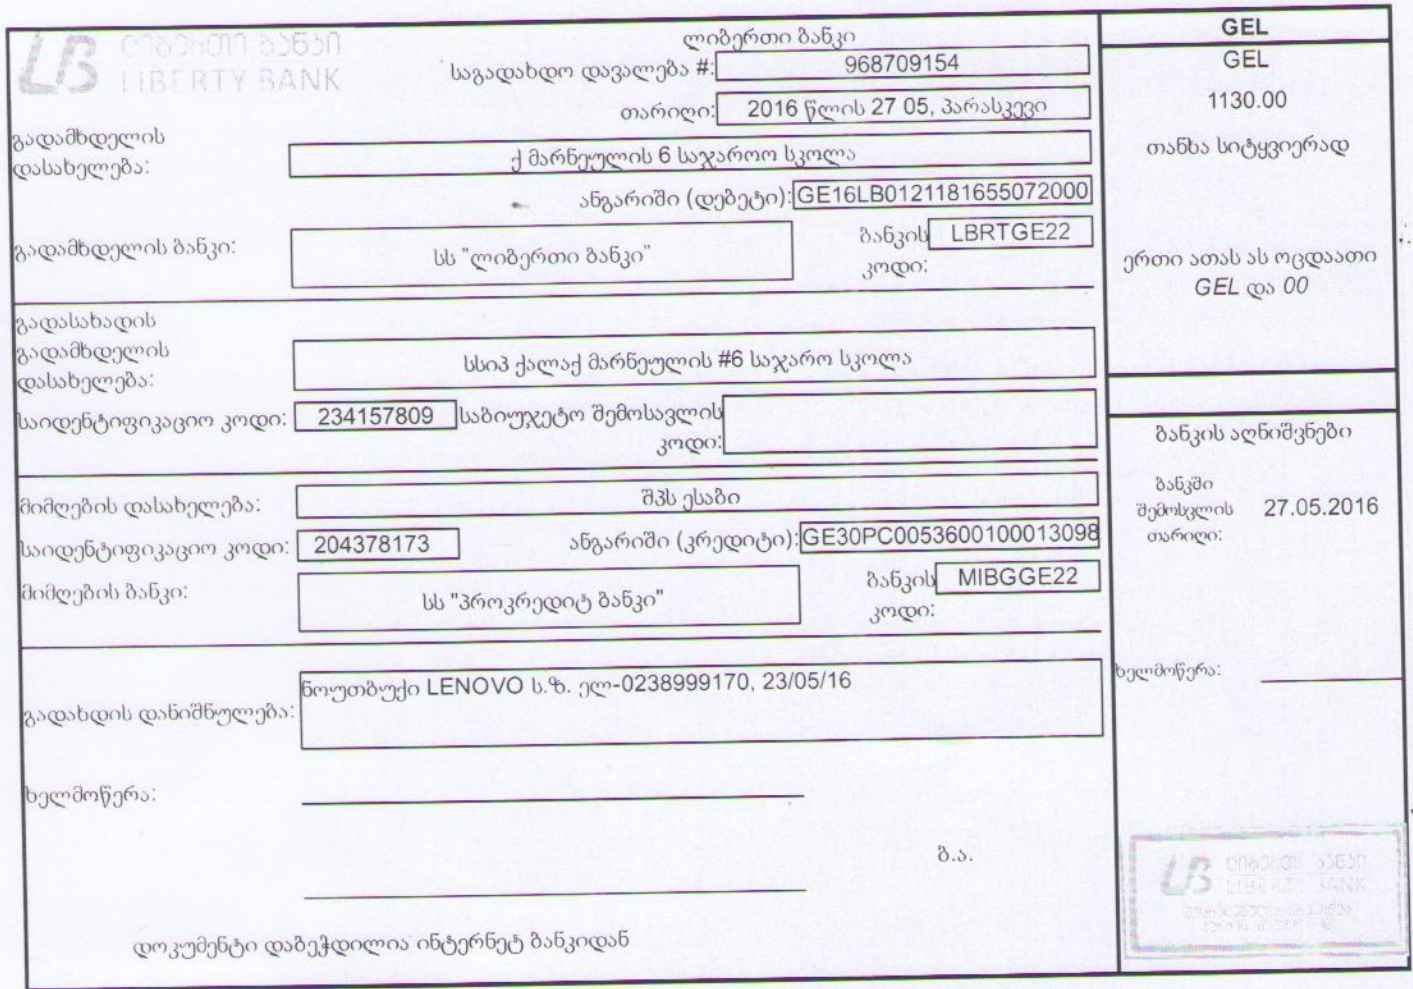 ლიბერთი ბანკი
LIBERTY BANK
ლიბერთი ბანკი
საგადახდო დავალება #: 968709154
თარიღი: 2016 წლის 27 05, პარასკევი
გადამხდელის
დასახელება: ქ მარნეულის 6 საჯაროო სკოლა
ანგარიში (დებეტი): GE16LB0121181655072000
გადამხდელის ბანკი: სს "ლიბერთი ბანკი" ბანკის LBRTGE22
კოდი:
გადასახადის
გადამხდელის
დასახელება: სსიპ ქალაქ მარნეულის #6 საჯარო სკოლა
საიდენტიფიკაციო კოდი: 234157809 საბიუჯეტო შემოსავლის
კოდი:
მიმღების დასახელება: შპს ესაბი
საიდენტიფიკაციო კოდი: 204378173 ანგარიში (კრედიტი): GE30PC0053600100013098
მიმღების ბანკი: სს "პროკრედიტ ბანკი" ბანკის MIBGGE22
კოდი:
ნოუთბუქი LENOVO ს.ზ. ელ-0238999170, 23/05/16
გადახდის დანიშნულება:
ხელმოწერა:
ბ.ა.
დოკუმენტი დაბეჭდილია ინტერნეტ ბანკიდან
GEL
GEL
1130.00
თანხა სიტყვიერად
ერთი ათას ას ოცდაათი
GEL და 00
ბანკის აღნიშვნები
ბანკში
შემოსვლის 27.05.2016
თარიღი:
ხელმოწერა:
LB ლიბერთი ბანკი
LIBERTY BANK